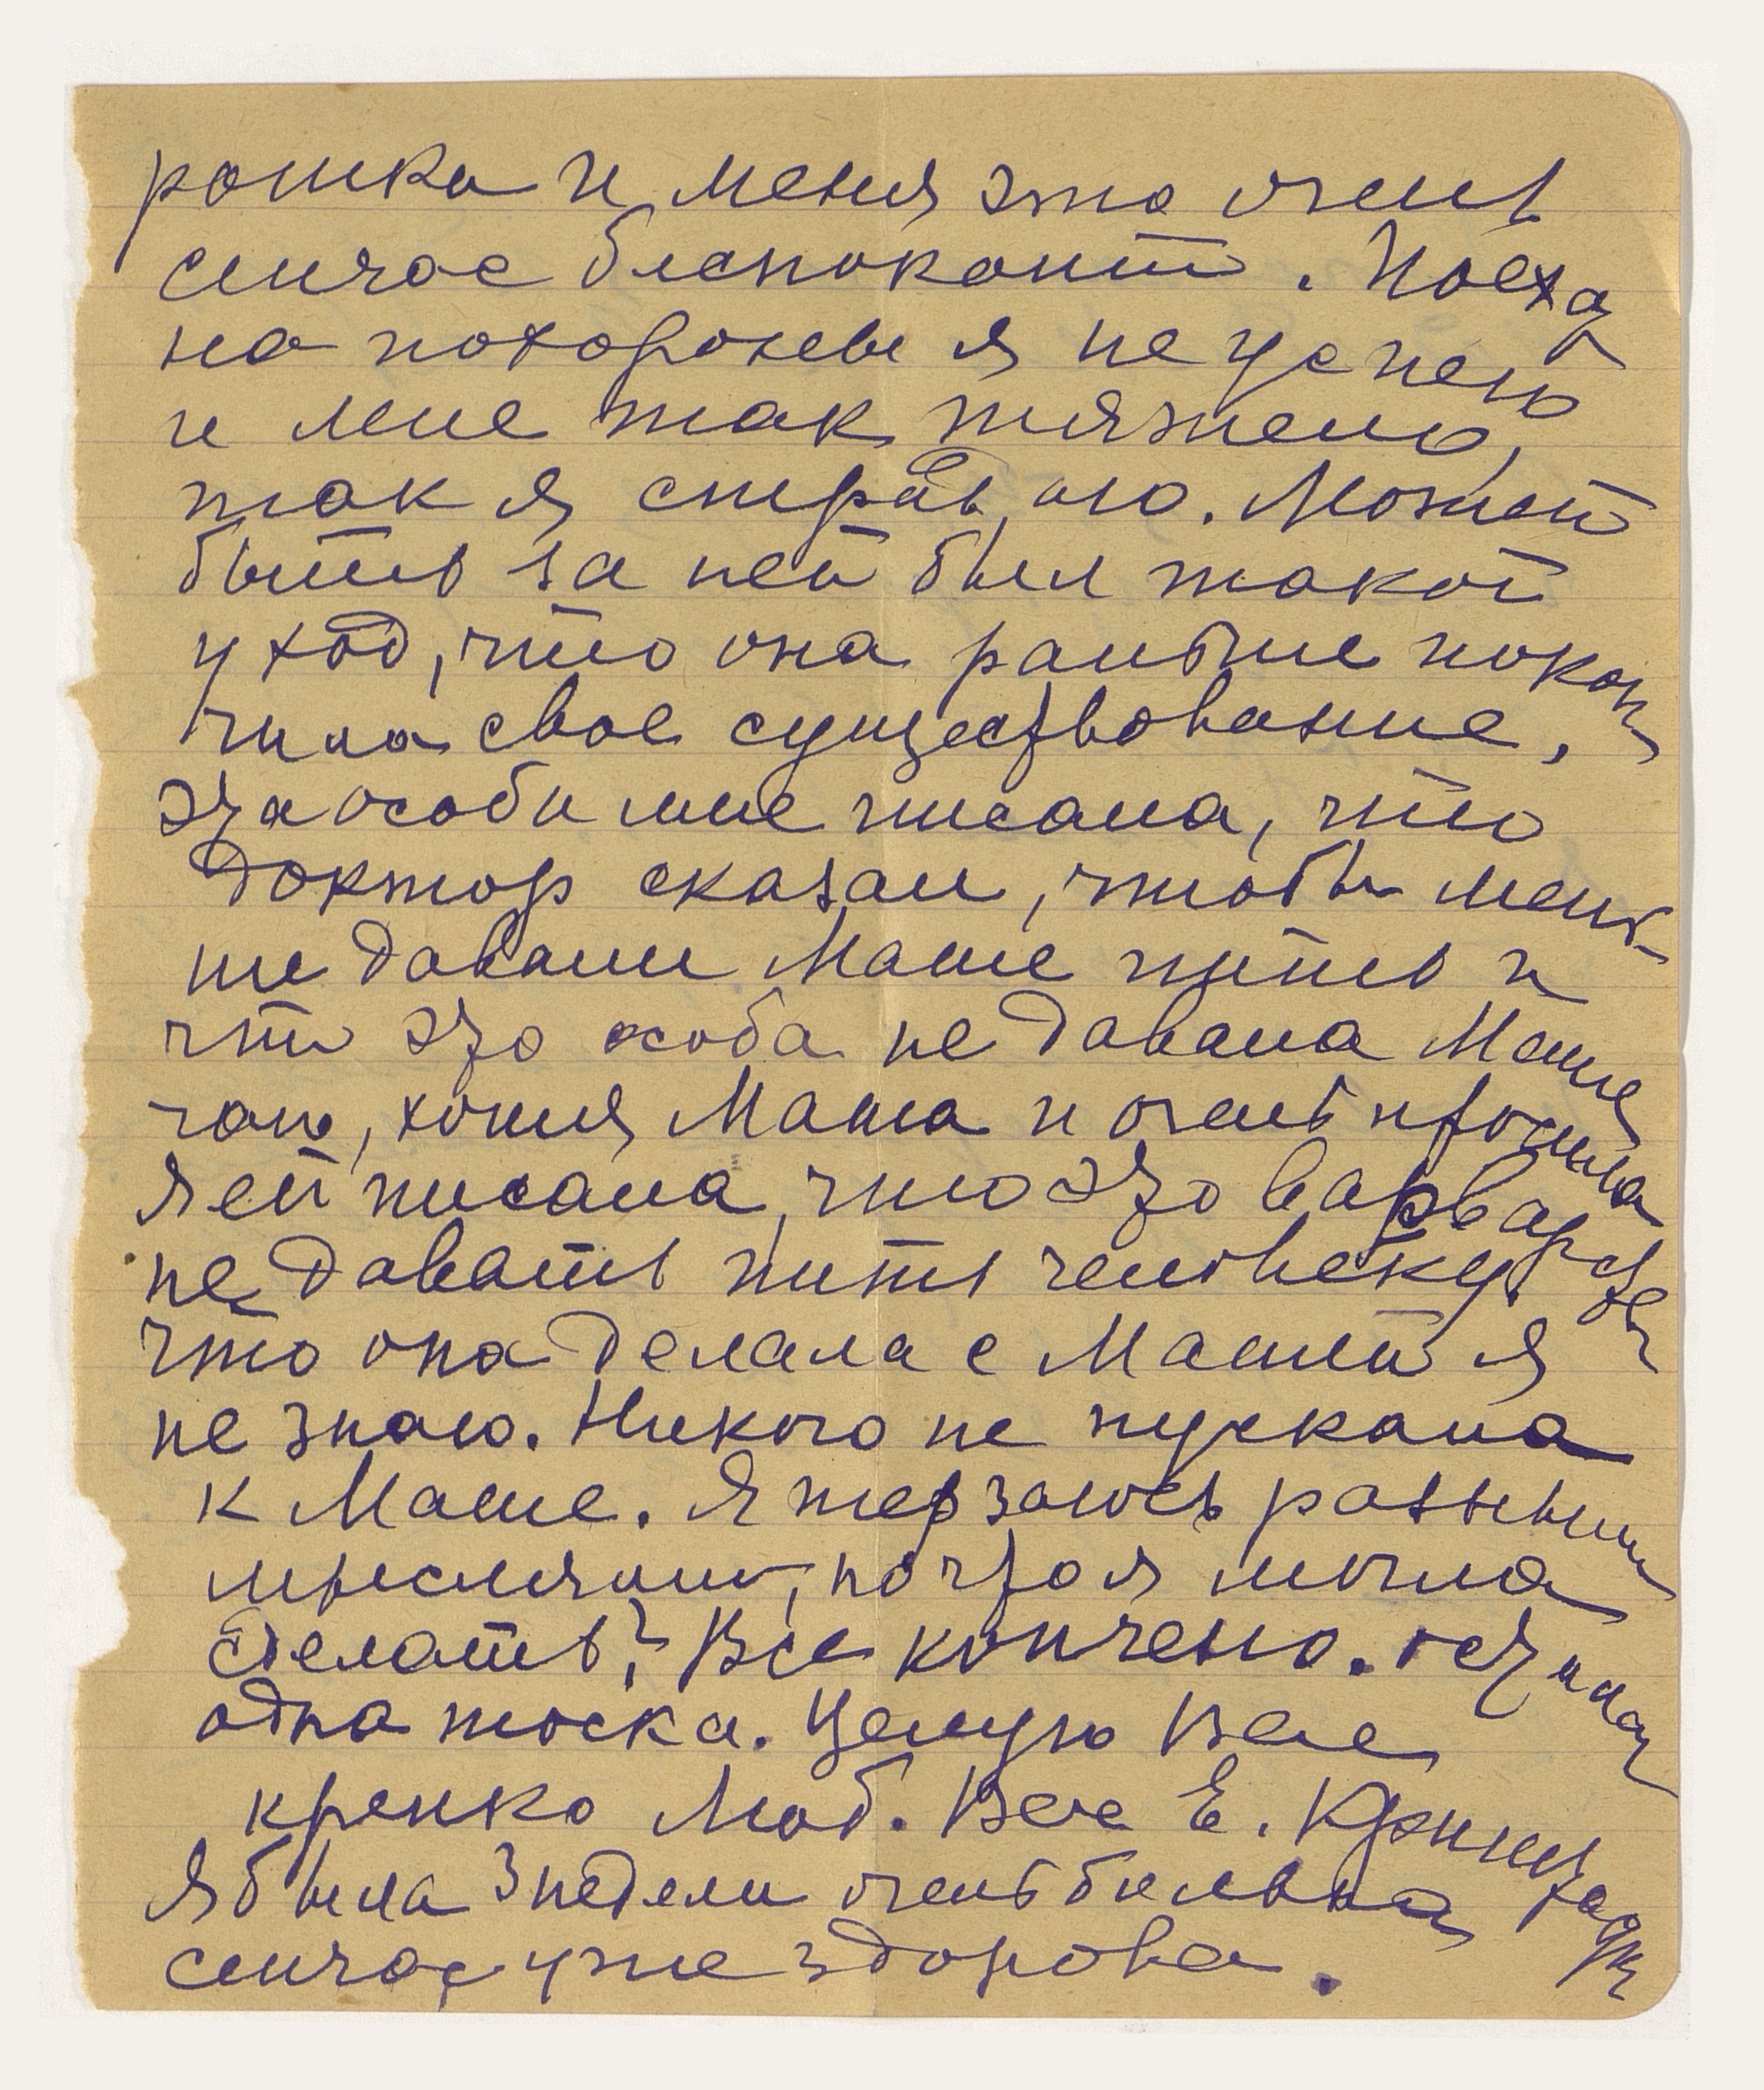 рошка и меня это очень
сичас беспокоит. Поеха
на похороны я не успею
и мне так тяжело,
так я страдаю. Может
быть за ней был такой
уход, что она раньше покон
чила свое существование,
эта особа мне писала, что
доктор сказал, чтобы мень
ше давали Маше пить и
что эта особа не давала Маше
чаю, хотя Маша и очень просила
Я ей писала, что это варварство
не давать пить человеку.
что она делала с Машей я
не знаю. Никого не пускала
к Маше. Я терзаюсь разными
мыслями, но что я могла
сделать? Все кончено. осталась
одна тоска. Целую Вас
крепко Люб. Вас Е.
Я была 3 недели очень больна
сичас уже здорова.